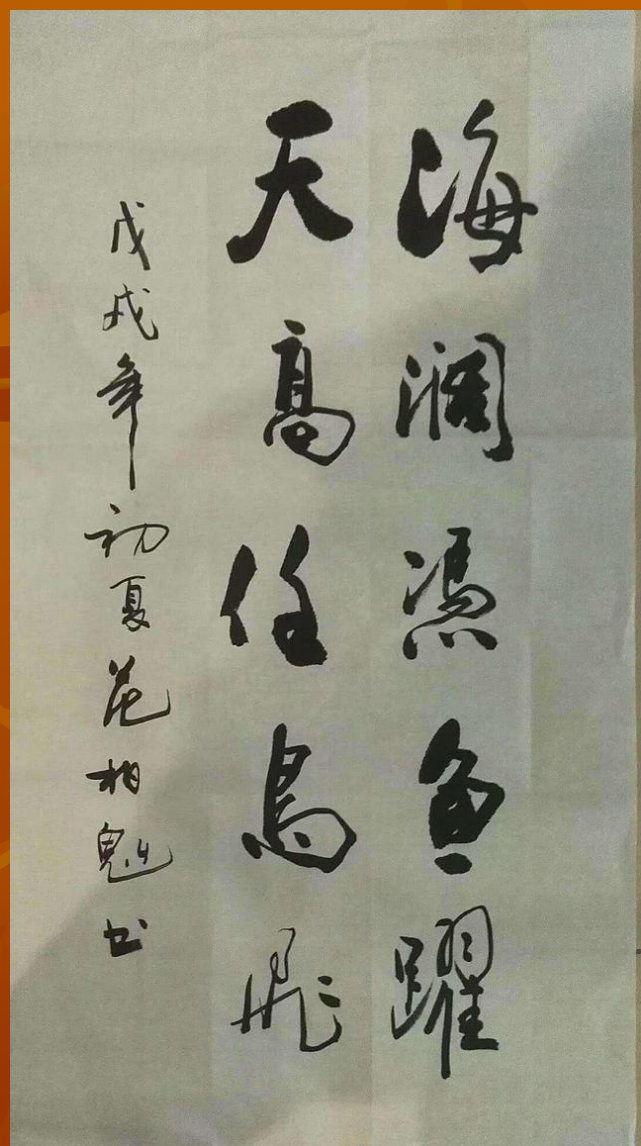 海濶憑鱼躍
天高任鳥飛
戊戌年初夏相魁书